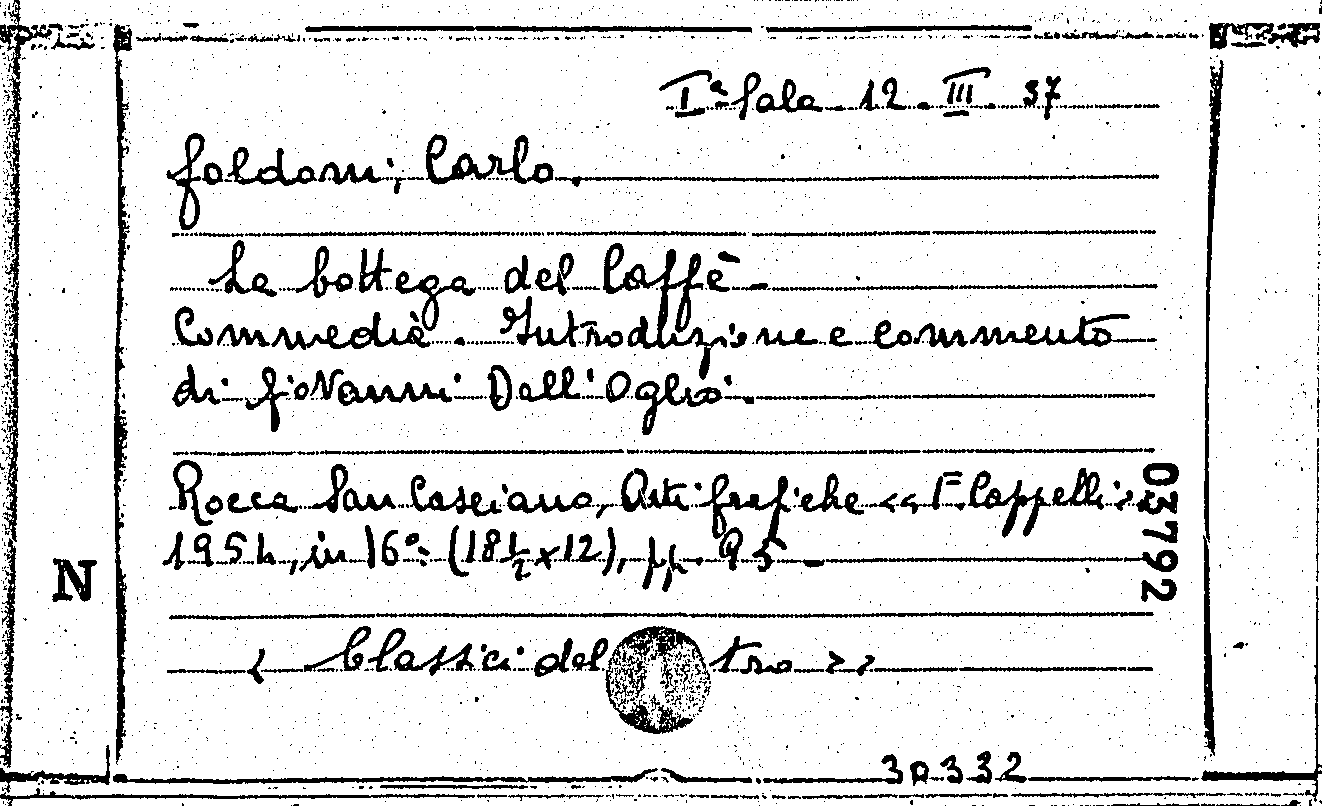 Iª Sala. 12. III. 37
Goldoni, Carlo.
La bottega del Caffè -
Commedia. Introduzione e commento
di Giovanni Dall'Oglio.
Rocca San Casciano, Arti Grafiche << F. Cappelli >>,
1954, in 16°. (18½ x 12), pp. 95 -
< Classici del tro >>
037792
N
30332